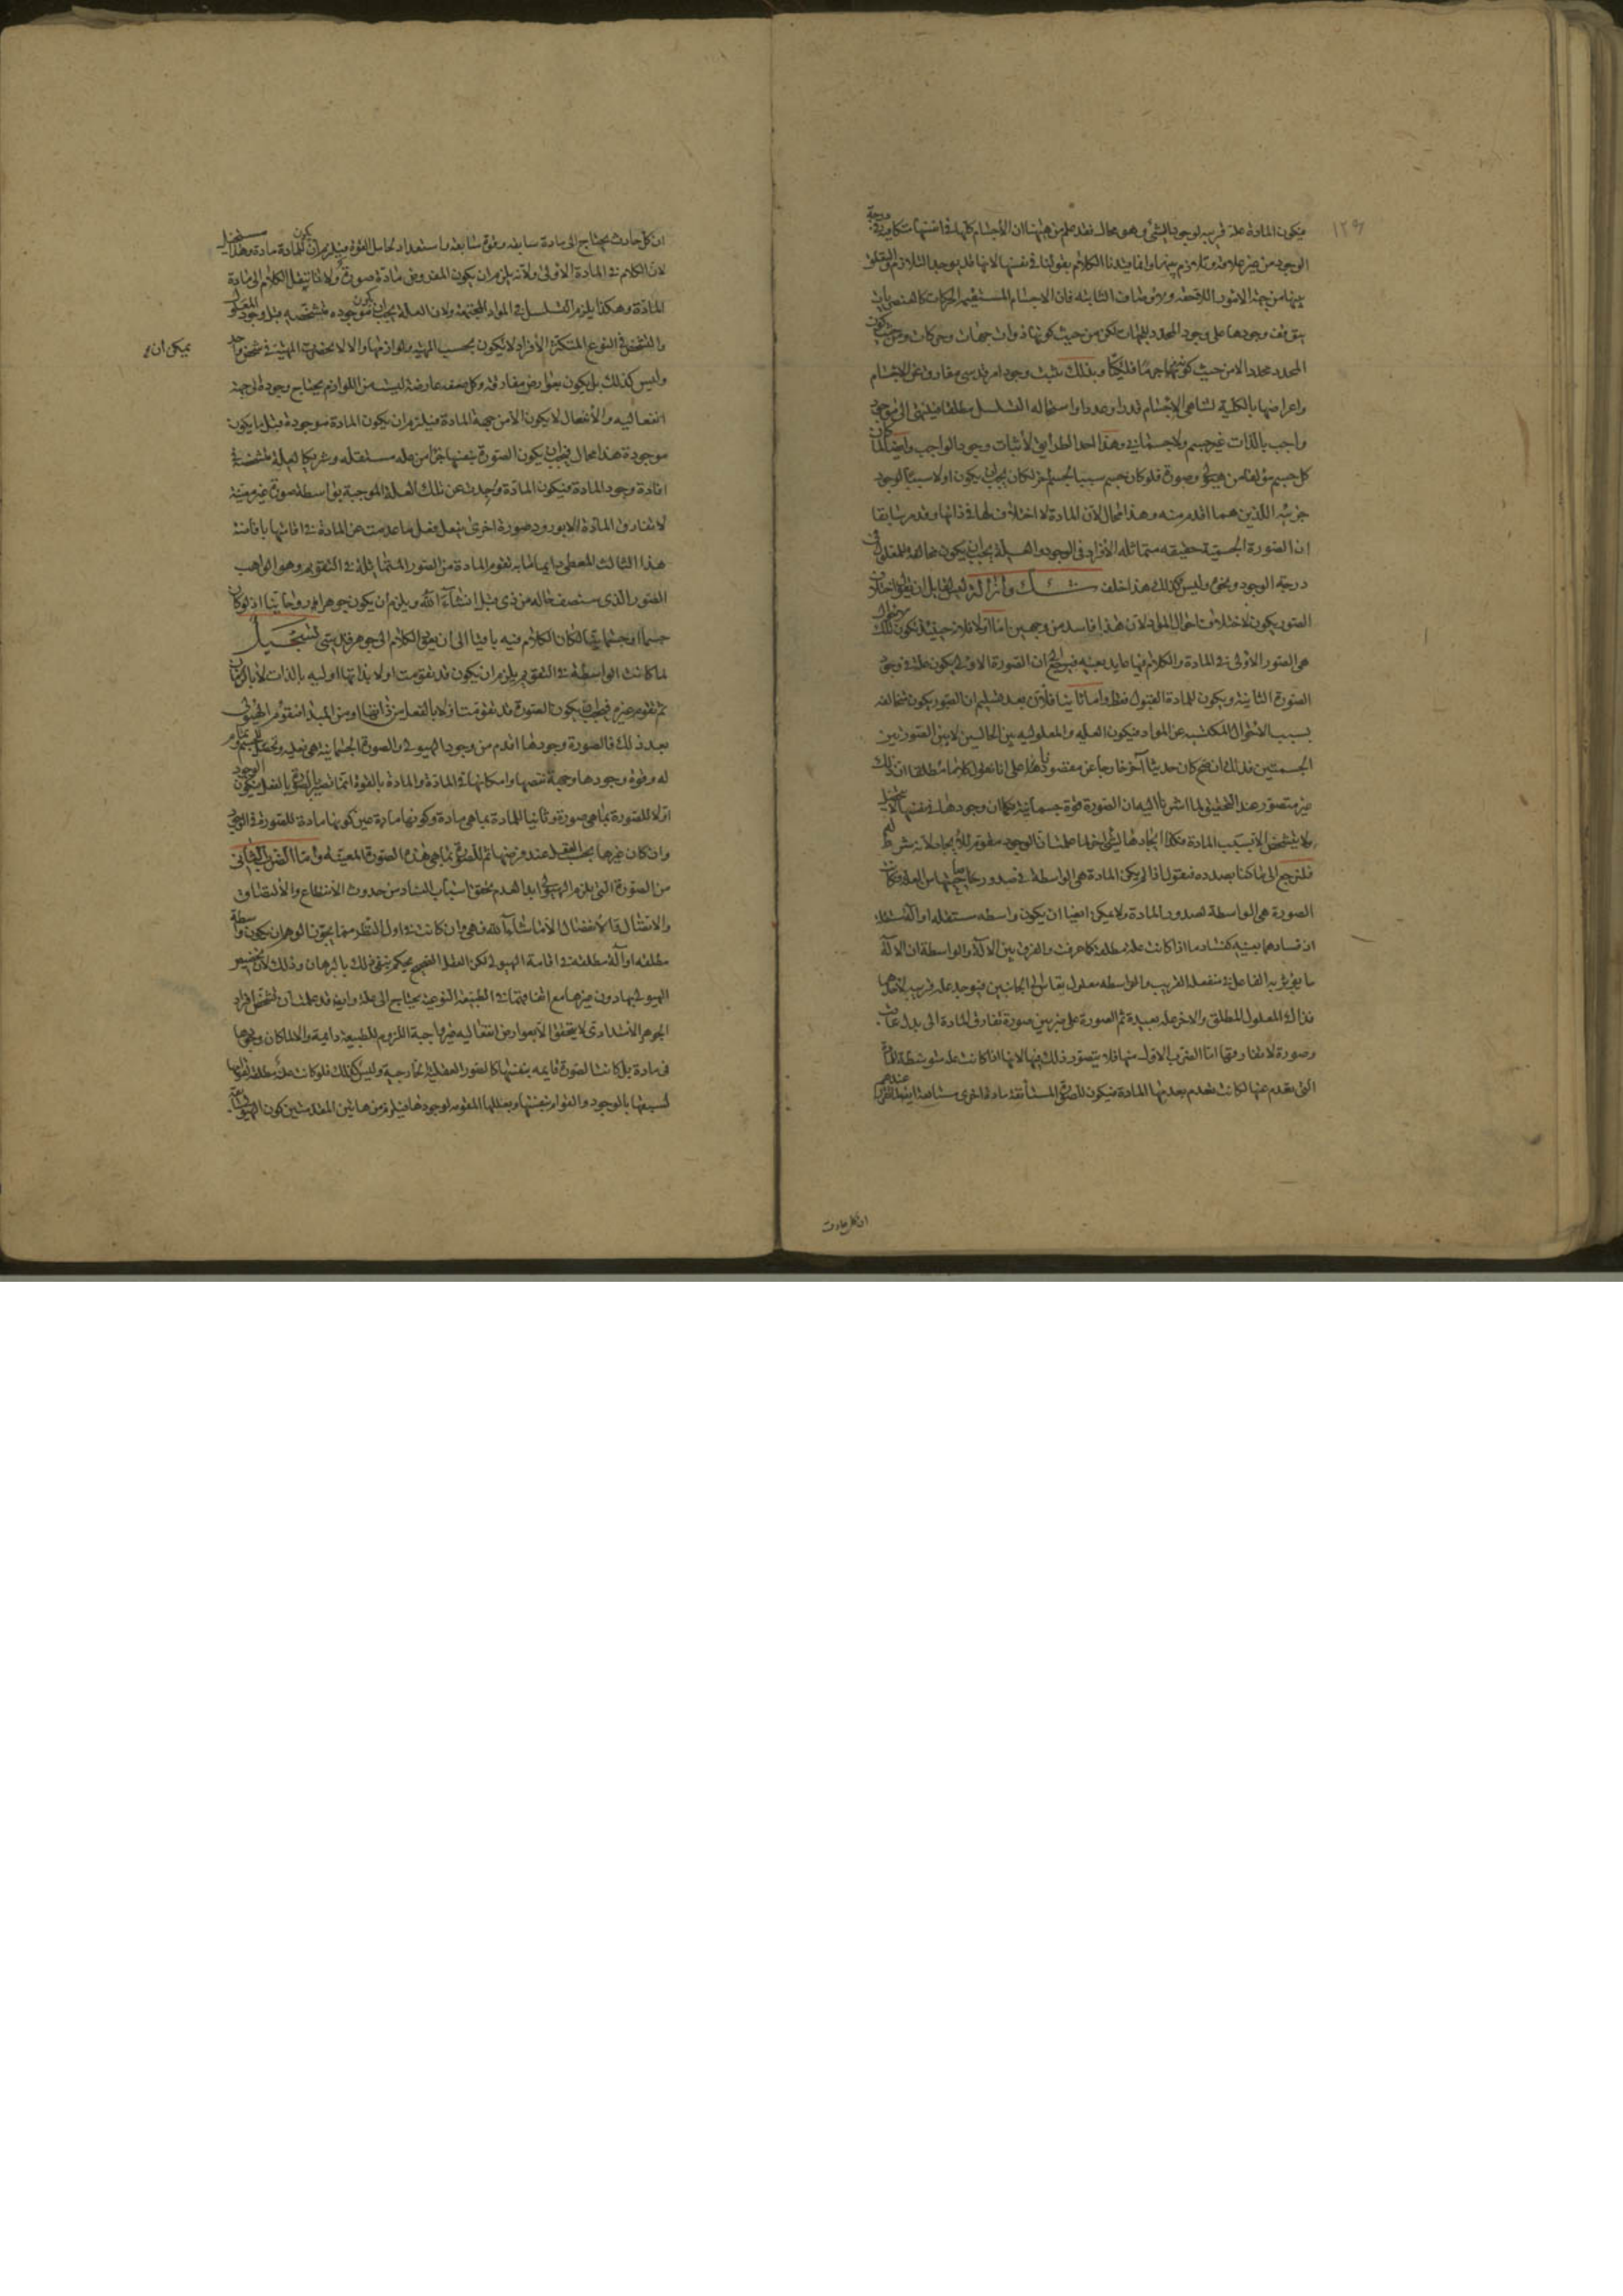 ١٢٩
فيكون المادة علة قريبة لوجود الشئ وهو محال فقد علم من هيهنا ان الأجسام كلها في انفسها متكافية درجة
الوجود من غير علاقة وتلازم بينهما وانما قيدنا الكلام بقولنا في نفسها لانها قد يوجد التلازم والتعلق
بينها من جهة الامور اللاحقة والاوصاف الثابتة فان الاجسام المستقيم الحركات كالعنصريات
يتوقف وجودها على وجود المحدد للجهات لكن من حيث كونها ذوات جهات وحركات ومن حيث كون
المحدد محددا لا من حيث كونهما جرما فلكيا وبذلك يثبت وجود امر قدسى مفارق عن الاجسام
واعراضها بالكلية لتناهى الاجسام قدرا وعددا واستحالة التسلسل مطلقا فينتهى الى موجود
واجب بالذات غير جسم ولا جسمانى وهذا احد الطرايق لأثبات وجود الواجب وايضا لما كان
كل جسم مؤلفا من هيولى وصورة فلو كان جسم سببا لجسم اخر لكان يجب ان يكون اولا سببا لوجود
جزئيه اللذين هما اقدم منه وهذا محال لأن المادة لا اختلاف لها في ذاتها وقد مر سابقا
ان الصورة الجسمية حقيقة متماثلة الأفراد في الوجود والعلة يجب ان يكون مخالفة للمعلول في
درجة الوجود ونحوه وليس كذلك هذا خلف شك وازالة ولعل لقايل ان يقول اختلاف
الصور يكون لاختلاف احوال المواد لان هذا فاسد من وجهين اما اولا فلانه حينئذ يكون تلك الاحوال
هى الصور الأولى في المادة والكلام فيها عايد بعينه فيرجع ان الصورة الاولى يكون علة في وجود
الصورة الثانية ويكون للمادة القبول فقط واما ثانيا فلأن بعد تسليم ان الصور يكون مخالفة
بسبب الأحوال المكتسبة عن المواد فيكون العلية والمعلولية بين الحالين لا بين الصورتين
الجسميتين فذلك ان صح كان حديثا آخر خارجا عن مقصودنا هذا على انا نقول كلاما مطلقا ان ذلك
غير متصور عند التحقيق لما اشرنا اليه ان الصورة قوة جسمانية فكما ان وجودها في نفسها لا يتحصل
ولا يتشخص الا بسبب المادة فكذا ايجادها لشئ اخر لما علمت ان الوجود مقوم للأيجاد لانه شرط له
فلنرجع الى ما كنا بصدده فنقول اذا لم يكن المادة هى الواسطة في صدور صاحبتها من العلة فكان
الصورة هى الواسطة لصدور المادة ولا يمكن ايضا ان يكون واسطة مستقلة او آلة مستقلة
اذ فسادهما بعينه كفساد ما اذا كانت علة مطلقة كما عرفت والفرق بين الآلة والواسطة ان الآلة
ما يؤثر به الفاعل في منفعله القريب والواسطة معلول يقاس الى الجانبين فيوجد علة قريبة لاحدهما
فذاك المعلول المطلق والاخر علة بعيدة ثم الصورة على ضربين صورة تفارق المادة الى بدل عاقب
وصورة لا تفارقها اما الضرب الاول منها فلا يتصور ذلك فيها لانها اذا كانت علة متوسطة للمادة
التى يقدم عنها لكانت تعدم بعدمها المادة فيكون للصورة المستأنفة مادة اخرى مستانفة ايضا لما قرر عندهم
ان كل حادث
ان كل حادث يحتاج الى مادة سابقة وقوة سابقة واستعداد لحامل القوة فيلزم ان يكون للمادة مادة وهذا مستحيل
لان الكلام في المادة الاولى ولأنه يلزم ان يكون المفروض مادة صورة ولانا ننقل الكلام الى مادة
المادة وهكذا يلزم التسلسل في المواد المجتمعة ولان العلة يجب ان يكون موجودة متشخصة قبل وجود المعلول
والتشخص في النوع المتكثر الأفراد لا يكون بحسب المهية ولوازمها والا لانحصرت المهية في شخص واحد
يمكن ان
وليس كذلك بل يكون بعوارض مفارقة وكل صفة عارضة ليست من اللوازم يحتاج وجوده الى جهة
انفعالية والأنفعال لا يكون الا من جهة المادة فيلزم ان يكون المادة موجودة قبل ما يكون
موجودة هذا محال فيجب ان يكون الصورة بعينها جزأ من علة مستقلة وشريكا لعلة مشخصة في
افادة وجود المادة فيكون المادة وجدت عن تلك العلة الموجبة بواسطة صورة غير معينة
لا تفارق المادة الا بورود صورة اخرى يفعل فعل ما عدمت عن المادة في اقامتها باقامة
هذا الثالث المعطى دايما لما به تقوم المادة من الصور المتماثلة في التقويم وهو الواهب
الصور الذى ستصف حاله من ذى قبل انشاء الله ويلزم ان يكون جوهرا روحانيا اذ لو كان
جسما او جسمانيا لكان الكلام فيه باقيا الى ان ينتهى الكلام الى جوهر قدسى تسجيل
لما كانت الواسطة في التقويم يلزم ان يكون قد تقومت اولا بذاتها اولية بالذات لا بالزمان
ثم تقوم غيره فيجب ان يكون الصورة قد تقومت اولا بالفعل من ذاتها او من المبدأ فتقوم الهيولى
بعد ذلك فالصورة وجودها اقدم من وجود الهيولى والصورة الجسمانية هى فعليه وتحصل للجسم وتمام
له وقوة وجودها وجهة نقصها وامكانها في المادة والمادة بالقوة انما تصير بالصورة بالفعل فيكون الوجود
اولا للصورة بما هى صورة وثانيا للمادة بما هى مادة وكونها مادة عين كونها مادة للصورة في الوجود
وان كان غيرها بحسب العقل عند فرضها ثم للصورة بما هى هذه الصورة المعينة واما الضرب الثانى
من الصورة التى يلزم الهيولى ابدا لعدم تحقق اسباب الفساد من حدوث الأنقطاع والألتصاق
والاتصال والأنفصال الا ما شاء الله فهى وان كانت في اول النظر مما يجوز الوهم ان يكون واسطة
مطلقة او آلة مطلقة في اقامة الهيولى لكن العقل الصحيح يحكم بنفى ذلك بالبرهان وذلك لأن تخصيص
الهيولى بها دون غيرها مع اتفاقهما في الطبيعة النوعية يحتاج الى علة وايضا قد علمت ان تشخص افراد
الجوهر الأمتدادى لا يتحقق الا بعوارض انفعالية غير واجبة اللزوم للطبيعة دايمة والا لما كان وجودها
في مادة بل كانت الصورة قايمة بنفسها كالصور العقلية الخارجية وليس كذلك فلو كانت علة مطلقة لقوامها
لسبقها بالوجود والقوام بنفسها وبعللها المقومة لوجودها فيلزم من هاتين المقدمتين كون الهيولى سابقة